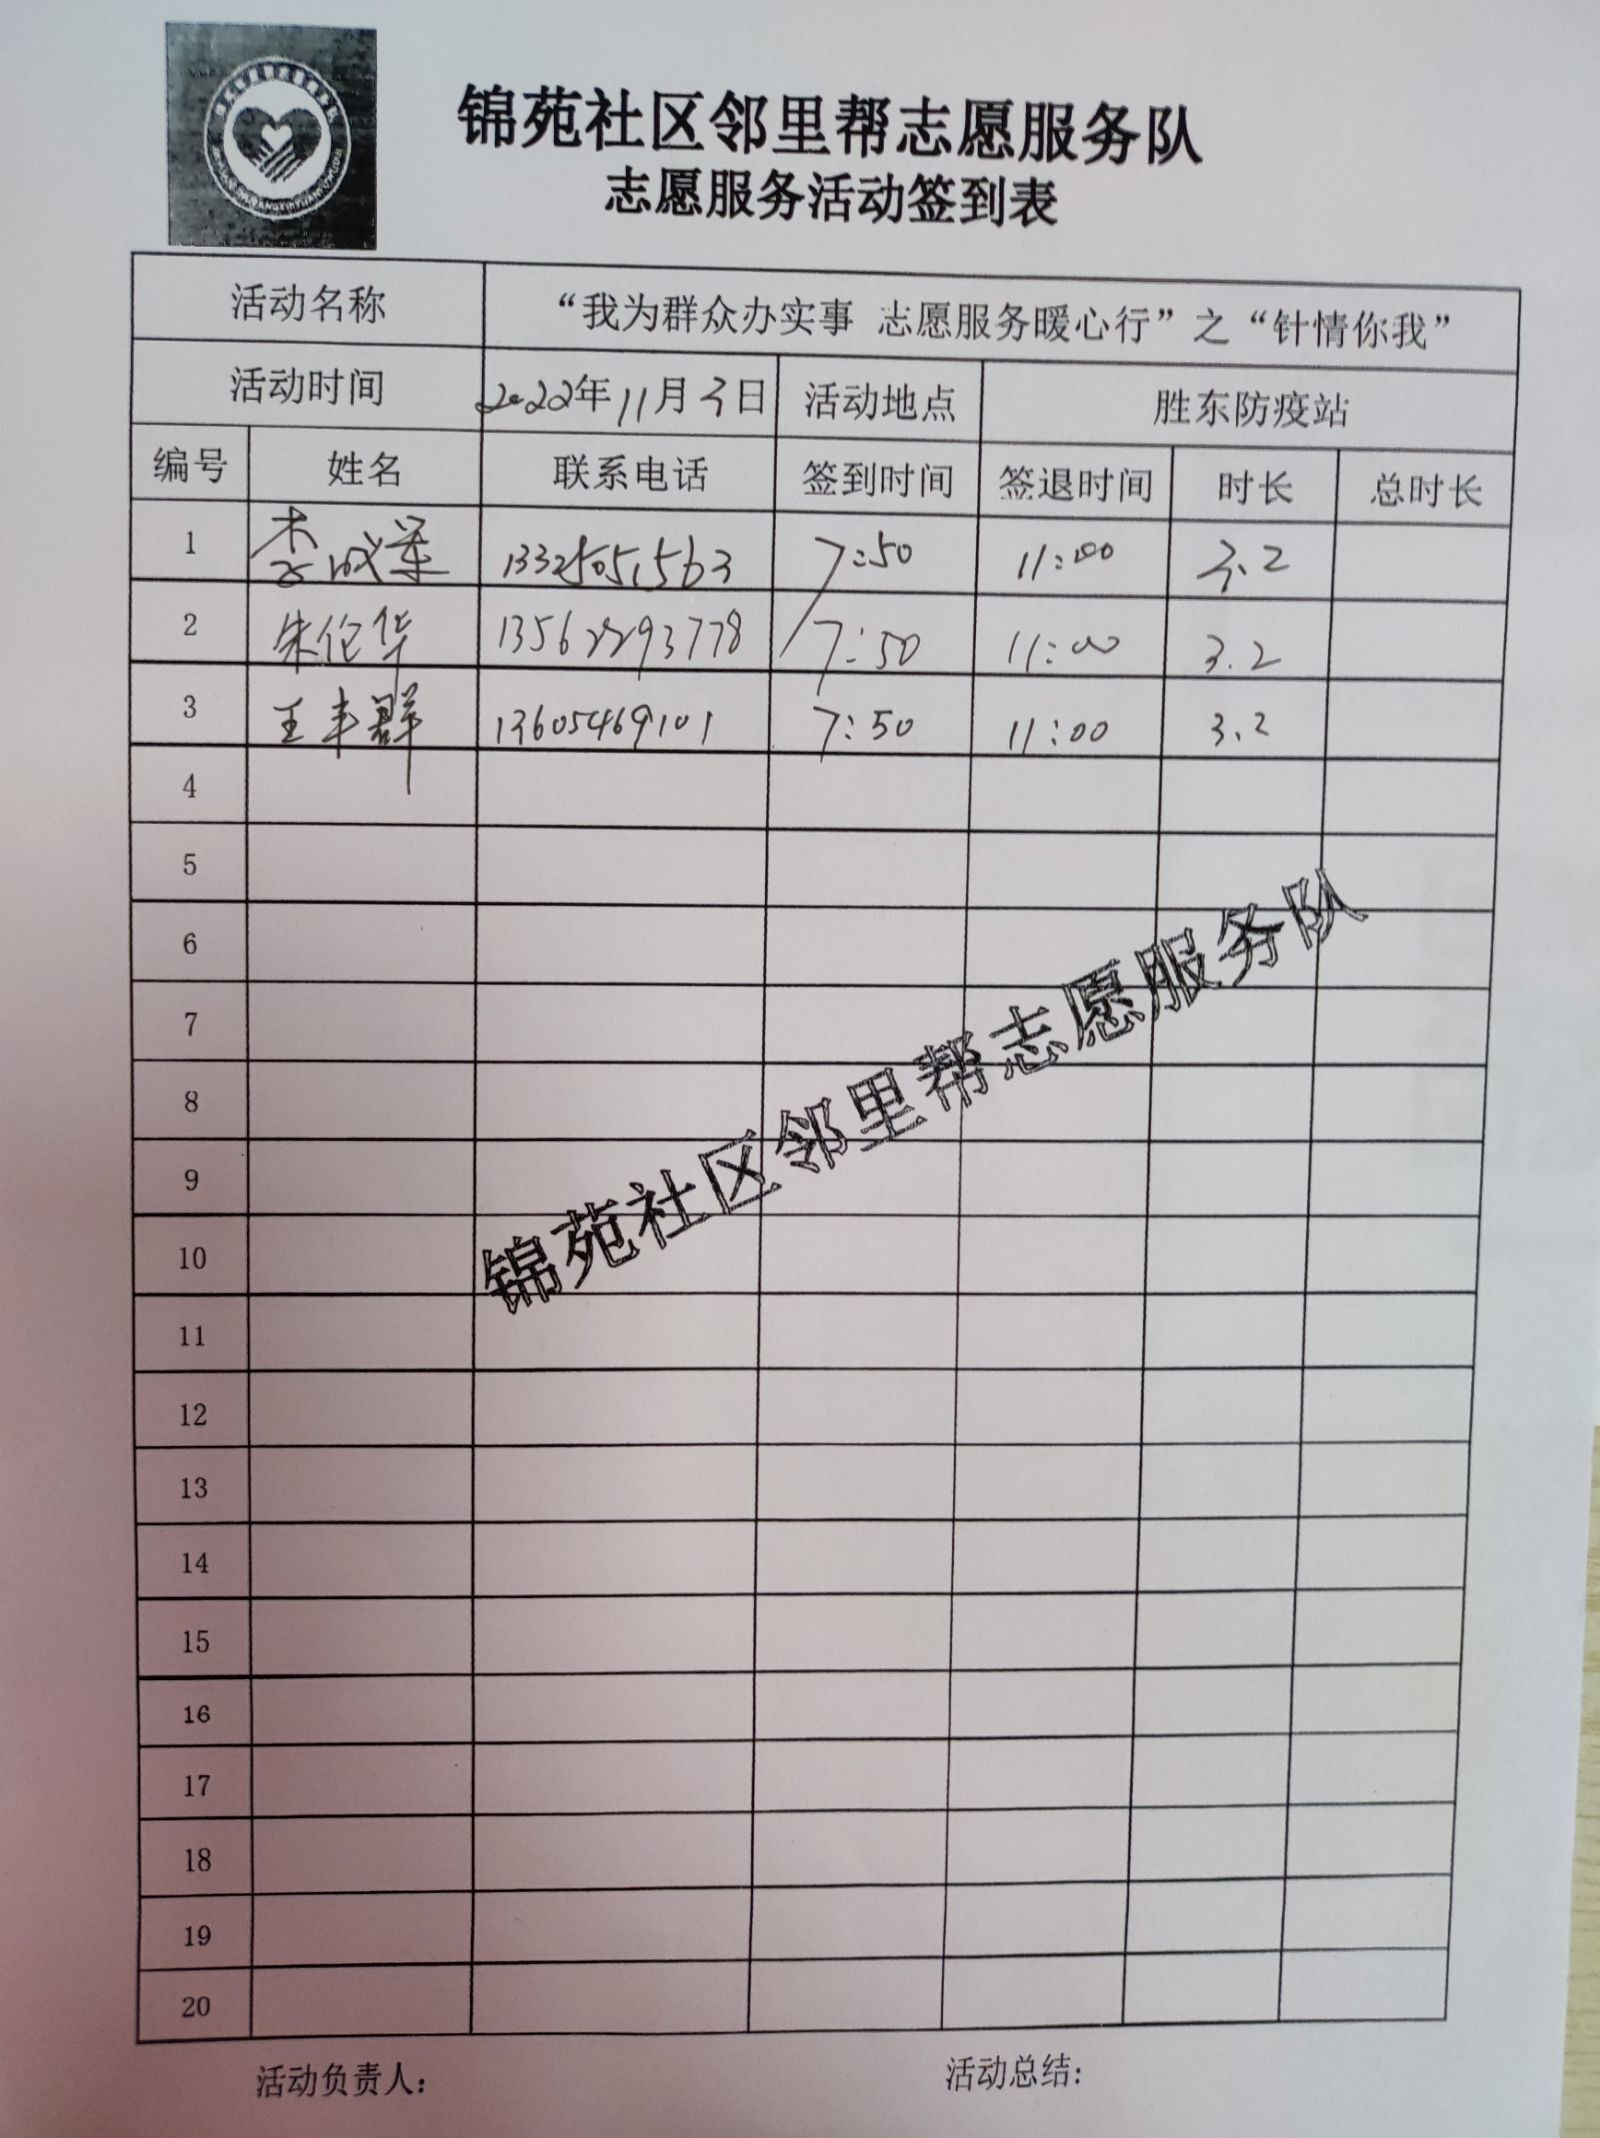 锦苑社区邻里帮志愿服务队
志愿服务活动签到表
活动名称 “我为群众办实事 志愿服务暖心行”之“针情你我”
活动时间 2022年11月3日 活动地点 胜东防疫站
编号 姓名 联系电话 签到时间 签退时间 时长 总时长
1 李成荣 13325051563 7:50 11:00 3.2
2 朱伦华 13562293778 7:50 11:00 3.2
3 王丰群 13605469101 7:50 11:00 3.2
4
5
6
7
8
9
10
11
12
13
14
15
16
17
18
19
20
锦苑社区邻里帮志愿服务队
活动负责人: 活动总结: